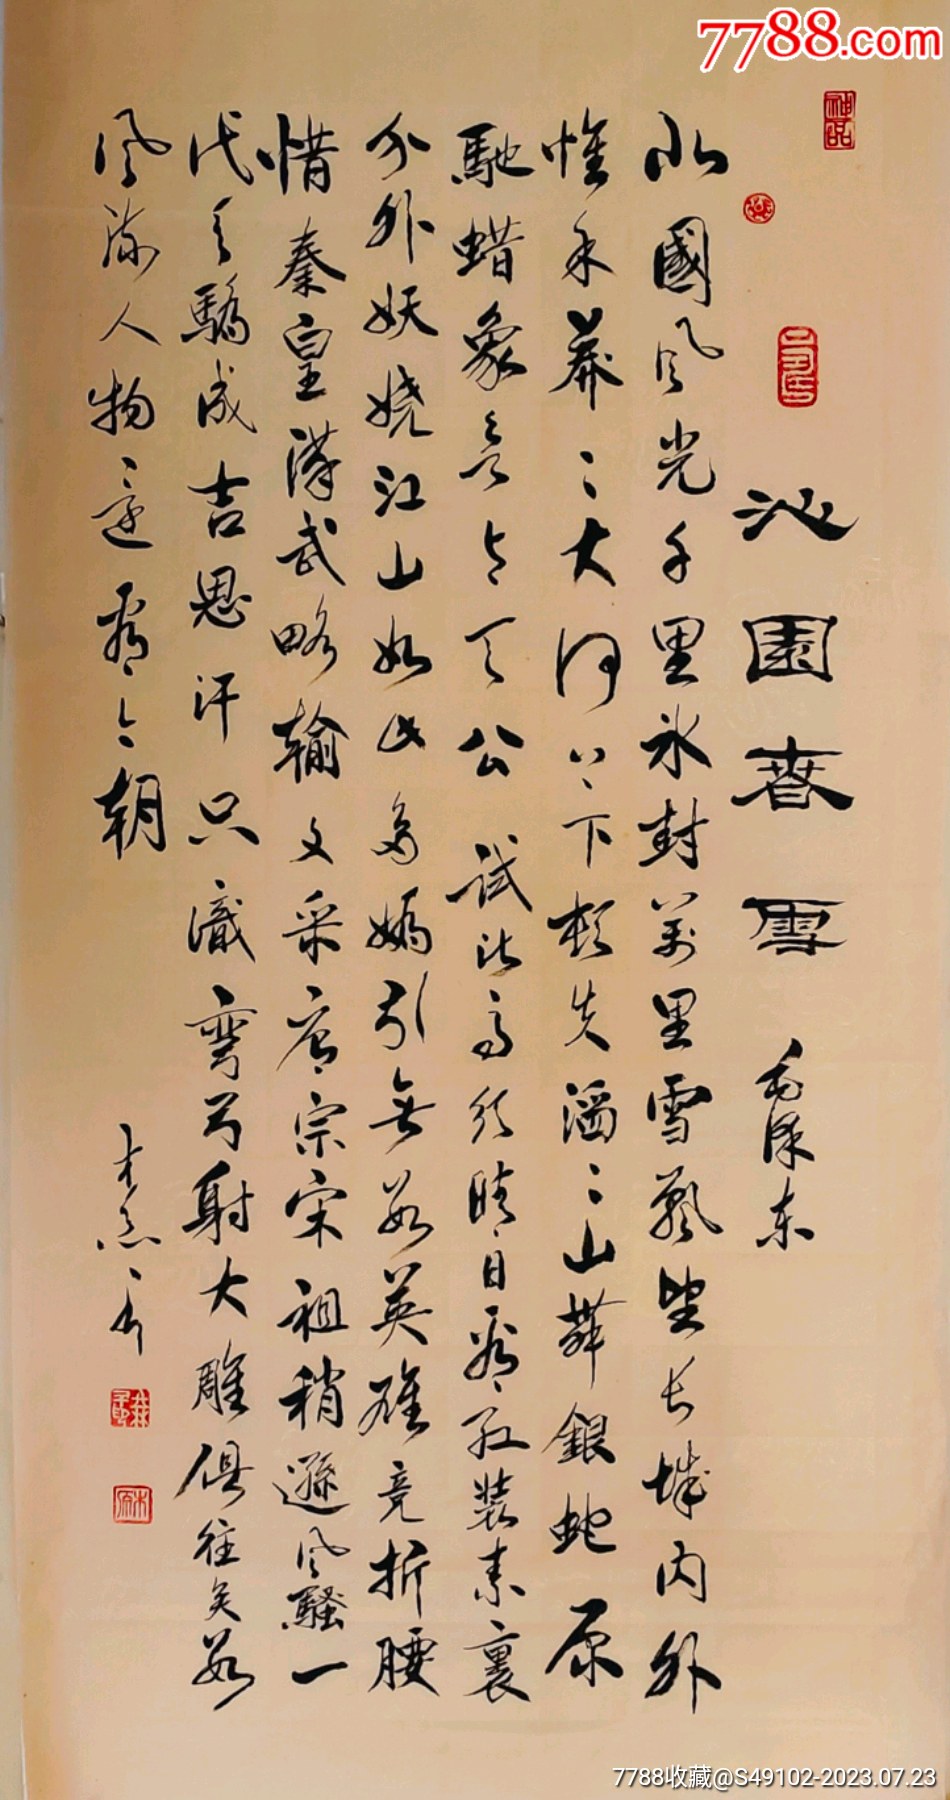 7788.com
沁園春雪 毛澤东
北國风光千里冰封萬里雪飄望长城内外
惟余莽〻大河上下頓失滔〻山舞銀蛇原
馳蜡象欲与天公試比高须晴日看红装素裹
分外妖娆江山如此多嬌引無数英雄竞折腰
惜秦皇漢武略輸文采唐宗宋祖稍遜风騷一
代天驕成吉思汗只識彎弓射大雕俱往矣数
风流人物还看今朝
7788收藏@S49102-2023.07.23